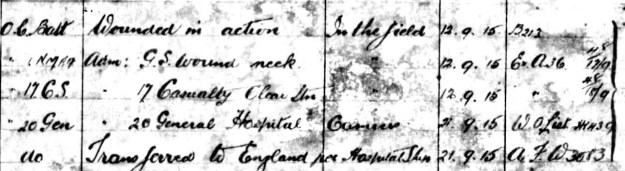 O.C. Batt Wounded in action In the field 12.9.15 B213
" Adm: G.S. wound neck " 12.9.15 E. A36
" 17 C.S " 17 Casualty Clear Stn " 12.9.15 "
" 20 Gen " 20 General Hospital Camiers 21.9.15 W O List
do Transferred to England per Hospital Ship 21.9.15 A.F.W 3083